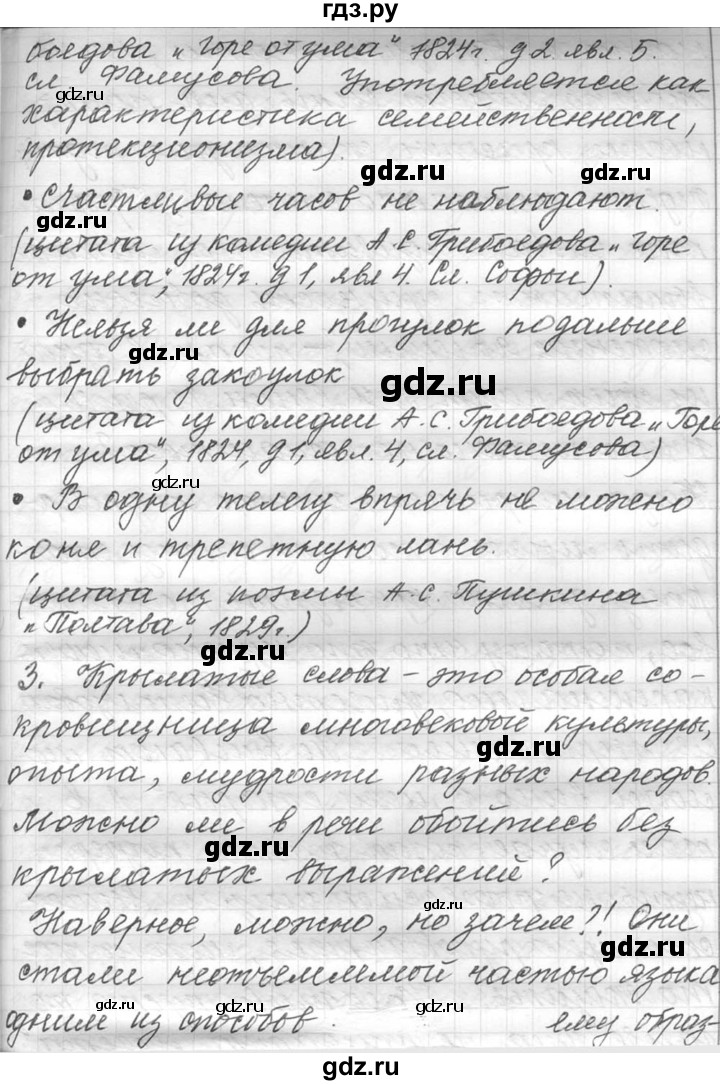 гдз.ру
боедова „Горе от ума" 1824г. д 2. явл. 5.
сл. Фамусова. Употребляется как
gdz.ru
характеристика семейственности,
протекционизма).
gdz.ru
gdz.ru
• Счастливые часов не наблюдают.
gdz.ru
(цитата из комедии А.С. Грибоедова „Горе
от ума", 1824г. д 1, явл 4. Сл. Софьи).
• Нельзя ли для прогулок подальше
gdz.ru
выбрать закоулок
gdz.ru
(цитата из комедии А.С. Грибоедова „Горе
от ума", 1824, д 1, явл. 4, сл. Фамусова)
gdz.ru
• В одну телегу впрячь не можно
коня и трепетную лань.
gdz.ru
(цитата из поэмы А.С. Пушкина
„Полтава", 1829г.)
gdz.ru
3. Крылатые слова – это особая со-
кровищница многовековой культуры,
gdz.ru
опыта, мудрости разных народов.
Можно ли в речи обойтись без
gdz.ru
крылатых выражений?
Наверное, можно, но зачем?! Они
gdz.ru
стали неотъемлемой частью языка
gdz.ru
gdz.ru
gdz.ru
одним из способов ему образ-
gdz.ru